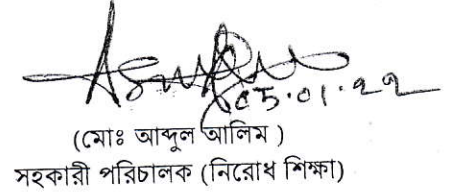 ০৫.০১.২২
(মোঃ আব্দুল আলিম )
সহকারী পরিচালক (নিরোধ শিক্ষা)